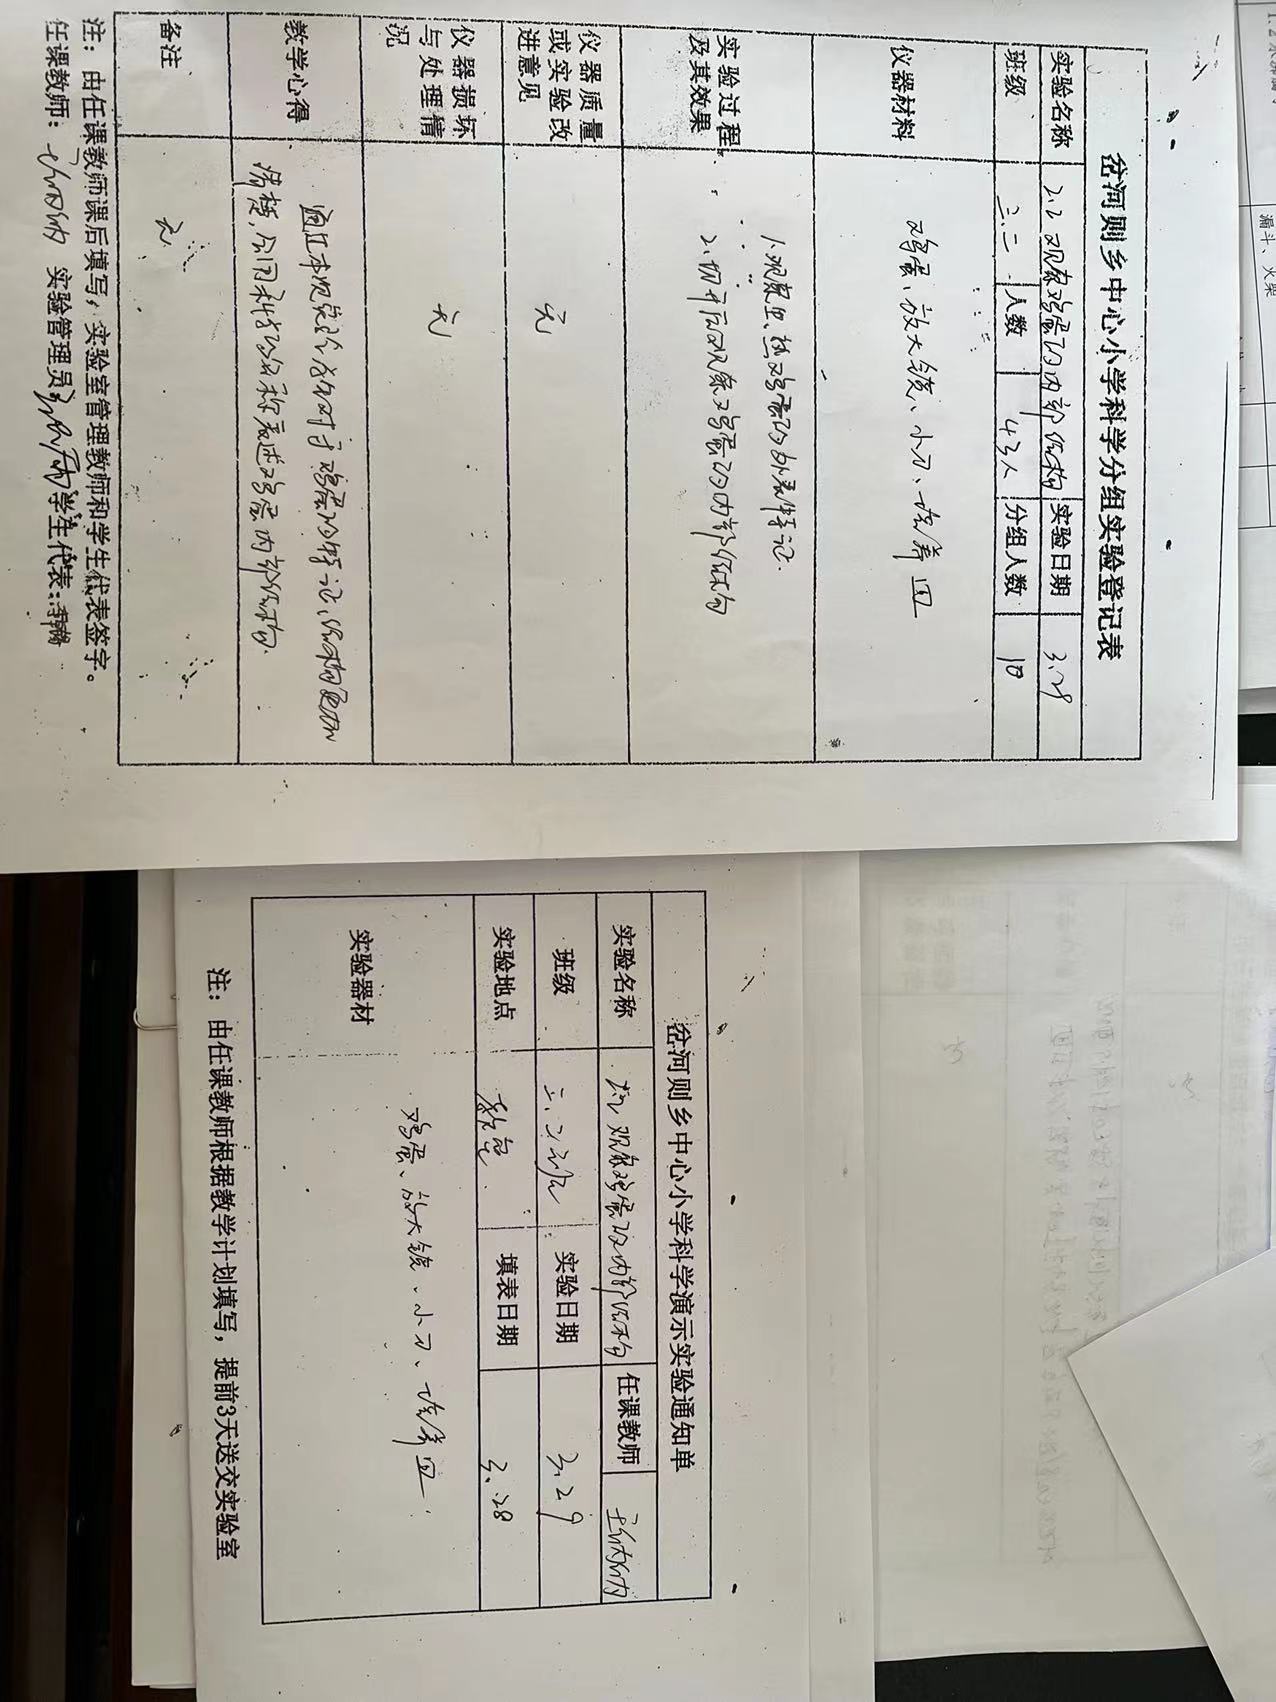 岔河则乡中心小学科学分组实验登记表
实验名称 2.2 观察鸡蛋的内部结构 实验日期 3.29
班级 三.二 人数 43人 分组人数 10
仪器材料 鸡蛋、放大镜、小刀、培养皿
实验过程及其效果
1.观察生、熟鸡蛋的外表特征.
2.切开后观察鸡蛋的内部结构
仪器质量或实验改进意见 无
仪器损坏与处理情况 无
教学心得
通过本次实验 对于鸡蛋的特征、结构更加
清楚,会用科学的名称表述鸡蛋内部结构.
备注 无
注:由任课教师课后填写,实验室管理教师和学生代表签字。
任课教师: 实验管理员: 学生代表:
岔河则乡中心小学科学演示实验通知单
实验名称 观察鸡蛋的内部结构 任课教师
班级 三.二班 实验日期 3.29
实验地点 教室 填表日期 3.28
实验器材 鸡蛋、放大镜、小刀、培养皿.
注:由任课教师根据教学计划填写,提前3天送交实验室
漏斗、火柴